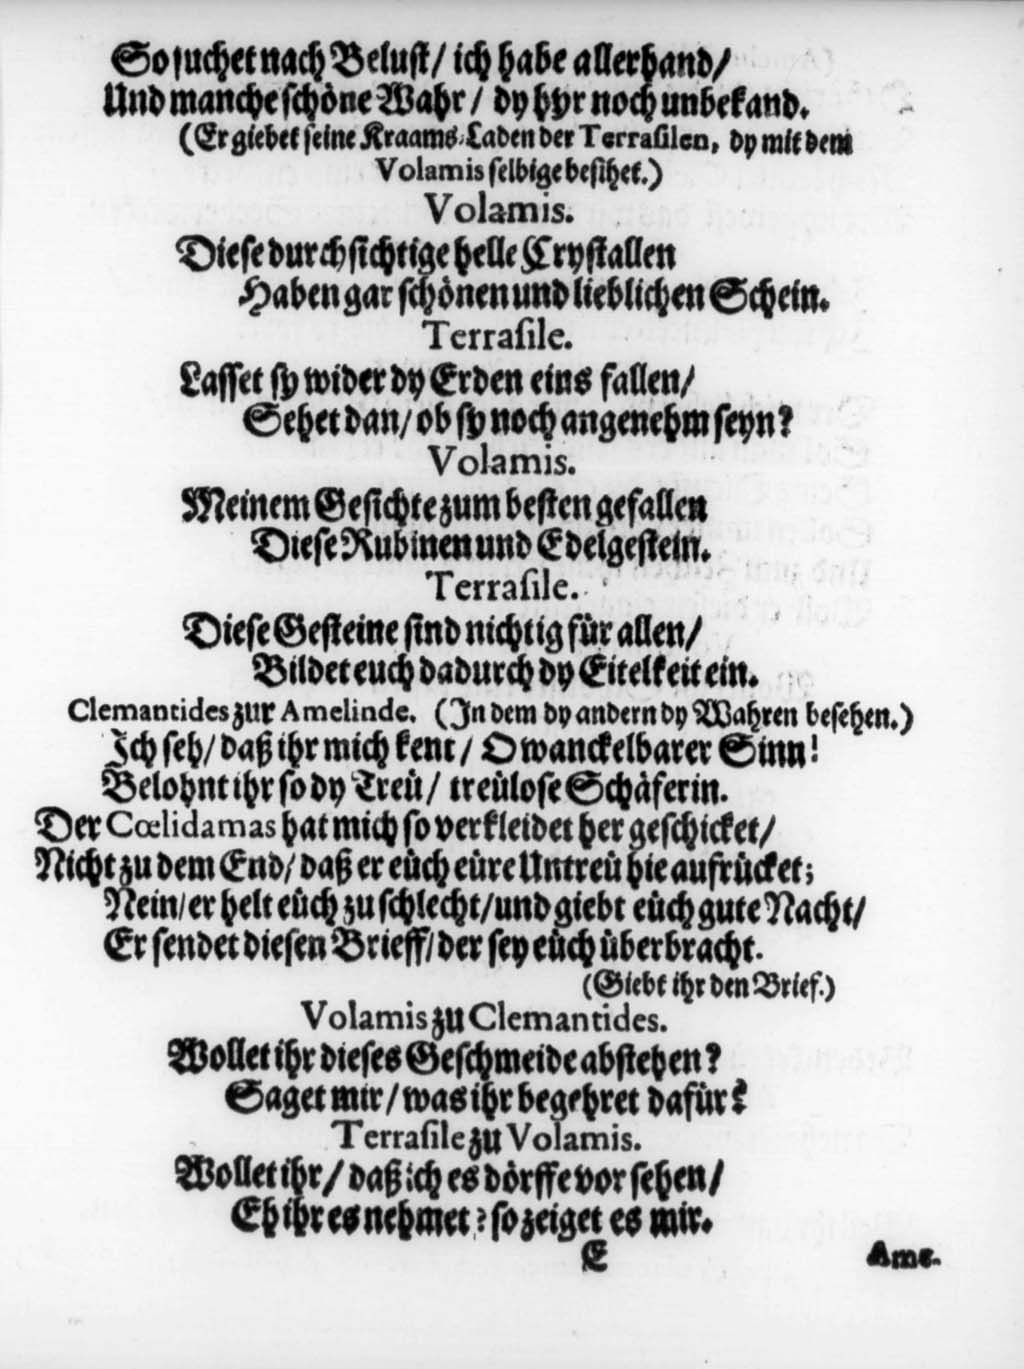 So suchet nach Belust/ ich habe allerhand/
Und manche schöne Wahr/ dy hyr noch unbekand.
(Er giebet seine Kraams-Laden der Terrasilen, dy mit dem
Volamis selbige besihet.)
Volamis.
Diese durchsichtige helle Crystallen
Haben gar schönen und lieblichen Schein.
Terrasile.
Lasset sy wider dy Erden eins fallen/
Sehet dan/ ob sy noch angenehm seyn?
Volamis.
Meinem Gesichte zum besten gefallen
Diese Rubinen und Edelgestein.
Terrasile.
Diese Gesteine sind nichtig für allen/
Bildet euch dadurch dy Eitelkeit ein.
Clemantides zur Amelinde. (In dem dy andern dy Wahren besehen.)
Ich seh/ daß ihr mich kent/ O wanckelbarer Sinn!
Belohnt ihr so dy Treü/ treülose Schäferin.
Der Cœlidamas hat mich so verkleidet her geschicket/
Nicht zu dem End/ daß er eüch eüre Untreü hie aufrücket;
Nein/ er helt eüch zu schlecht/ und giebt eüch gute Nacht/
Er sendet diesen Brieff/ der sey eüch überbracht.
(Giebt ihr den Brief.)
Volamis zu Clemantides.
Wollet ihr dieses Geschmeide abstehen?
Saget mir/ was ihr begehret dafür?
Terrasile zu Volamis.
Wollet ihr/ daß ich es dörffe vor sehen/
Eh ihr es nehmet? so zeiget es mir.
E Ame-